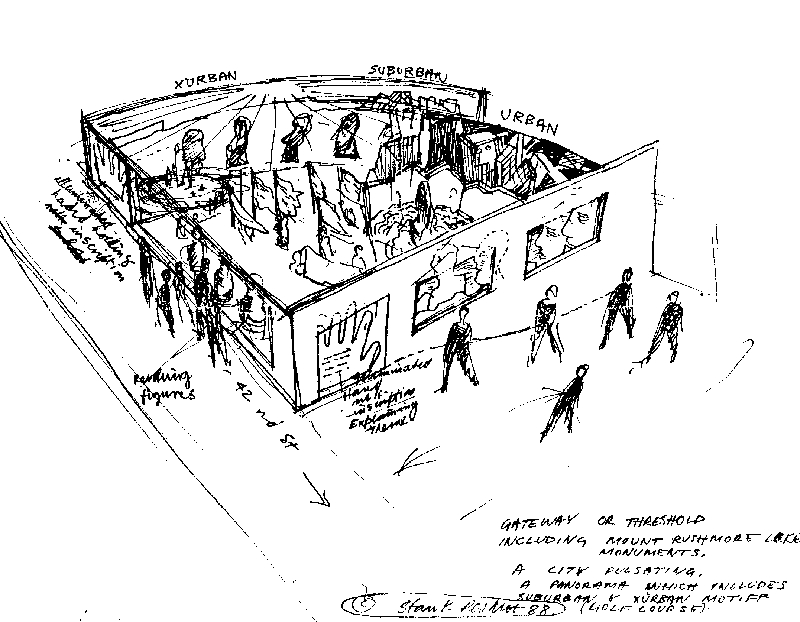 XURBAN
SUBURBAN
URBAN
illuminated
hand holding
with inscription
Revolving
figures
42nd St
Illuminated
Hand
with
inscription
Explaining
Theme
GATEWAY OR THRESHOLD
INCLUDING MOUNT RUSHMORE LIKE
MONUMENTS.
A CITY PULSATING,
A PANORAMA WHICH INCLUDES
SUBURBAN & XURBAN MOTIFF
(GOLF COURSE).
©
88